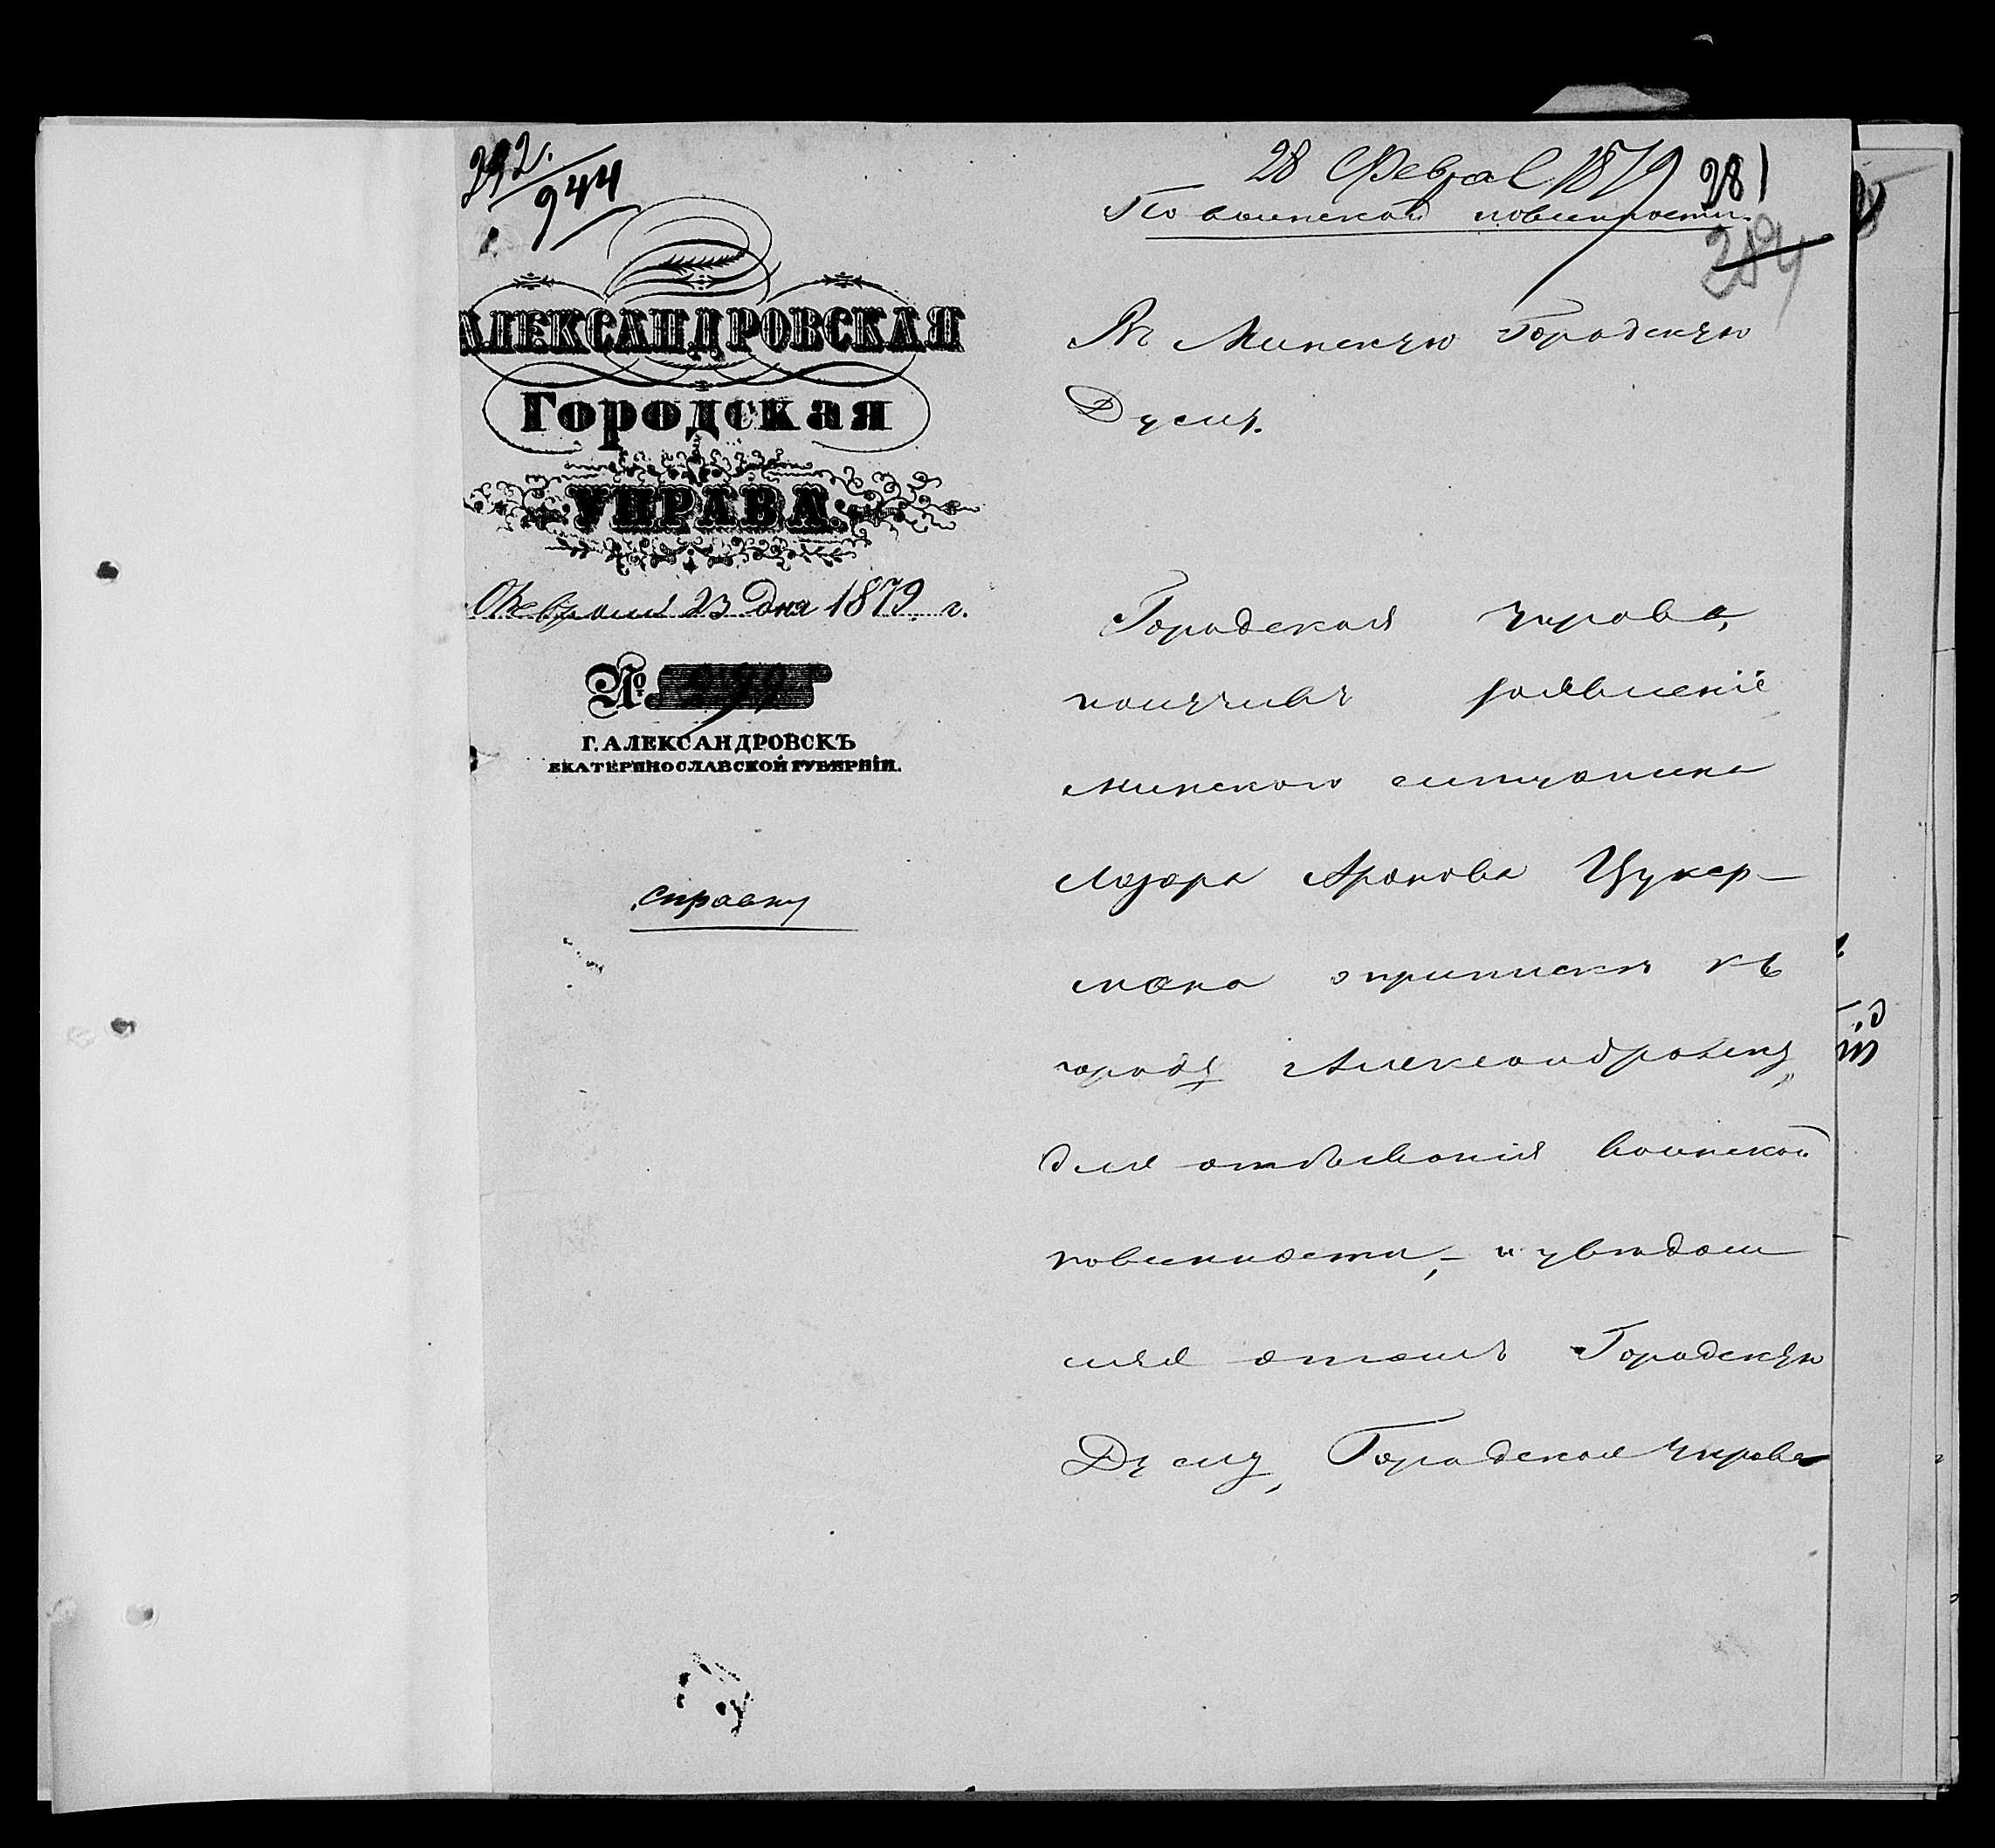 292.
944
АЛЕКСАНДРОВСКАЯ
Городская
УПРАВА.
Февраля 23 дня 1879 г.
№
Г. АЛЕКСАНДРОВСКЪ
ЕКАТЕРИНОСЛАВСКОЙ ГУБЕРНІИ.
справку
28 Феврал 1879
281
По воинской повинности.
284
Въ Минскую Городскую
Думу.
Городская Управа,
получивъ заявленіе
минскаго мѣщанина
Лазаря Аронова Цукер-
мана о припискѣ къ
городу Александровску,
для отбыванія воинской
повинности, - и увѣдом
ляя о томъ Городскую
Думу, Городская Управа